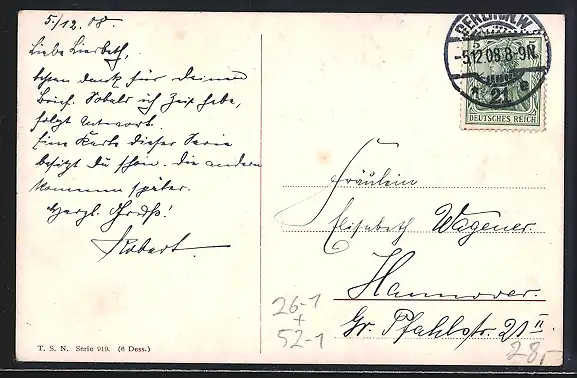 5./12. 08.
Liebe Lisbeth,
besten Dank für Deinen
Brief. Sobald ich Zeit habe,
folgt Antwort.
Eine Karte dieser Serie
besitzt Du schon. Die andern
kommen später.
Herzl. Gruß!
Robert.
T. S. N. Serie 919. (6 Dess.)
BERLIN N.W.
-5.12.08.8-9N.
21
DEUTSCHES REICH
Fräulein
Elisabeth Wagener
Hannover.
Gr. Pfahlstr. 21 II
26-1
+
52-1
28,-